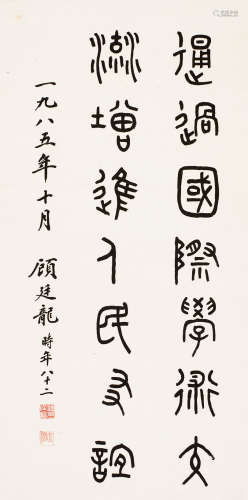 通過國際學術交
流增進人民友誼
一九八五年十月 顧廷龍 時年八十二